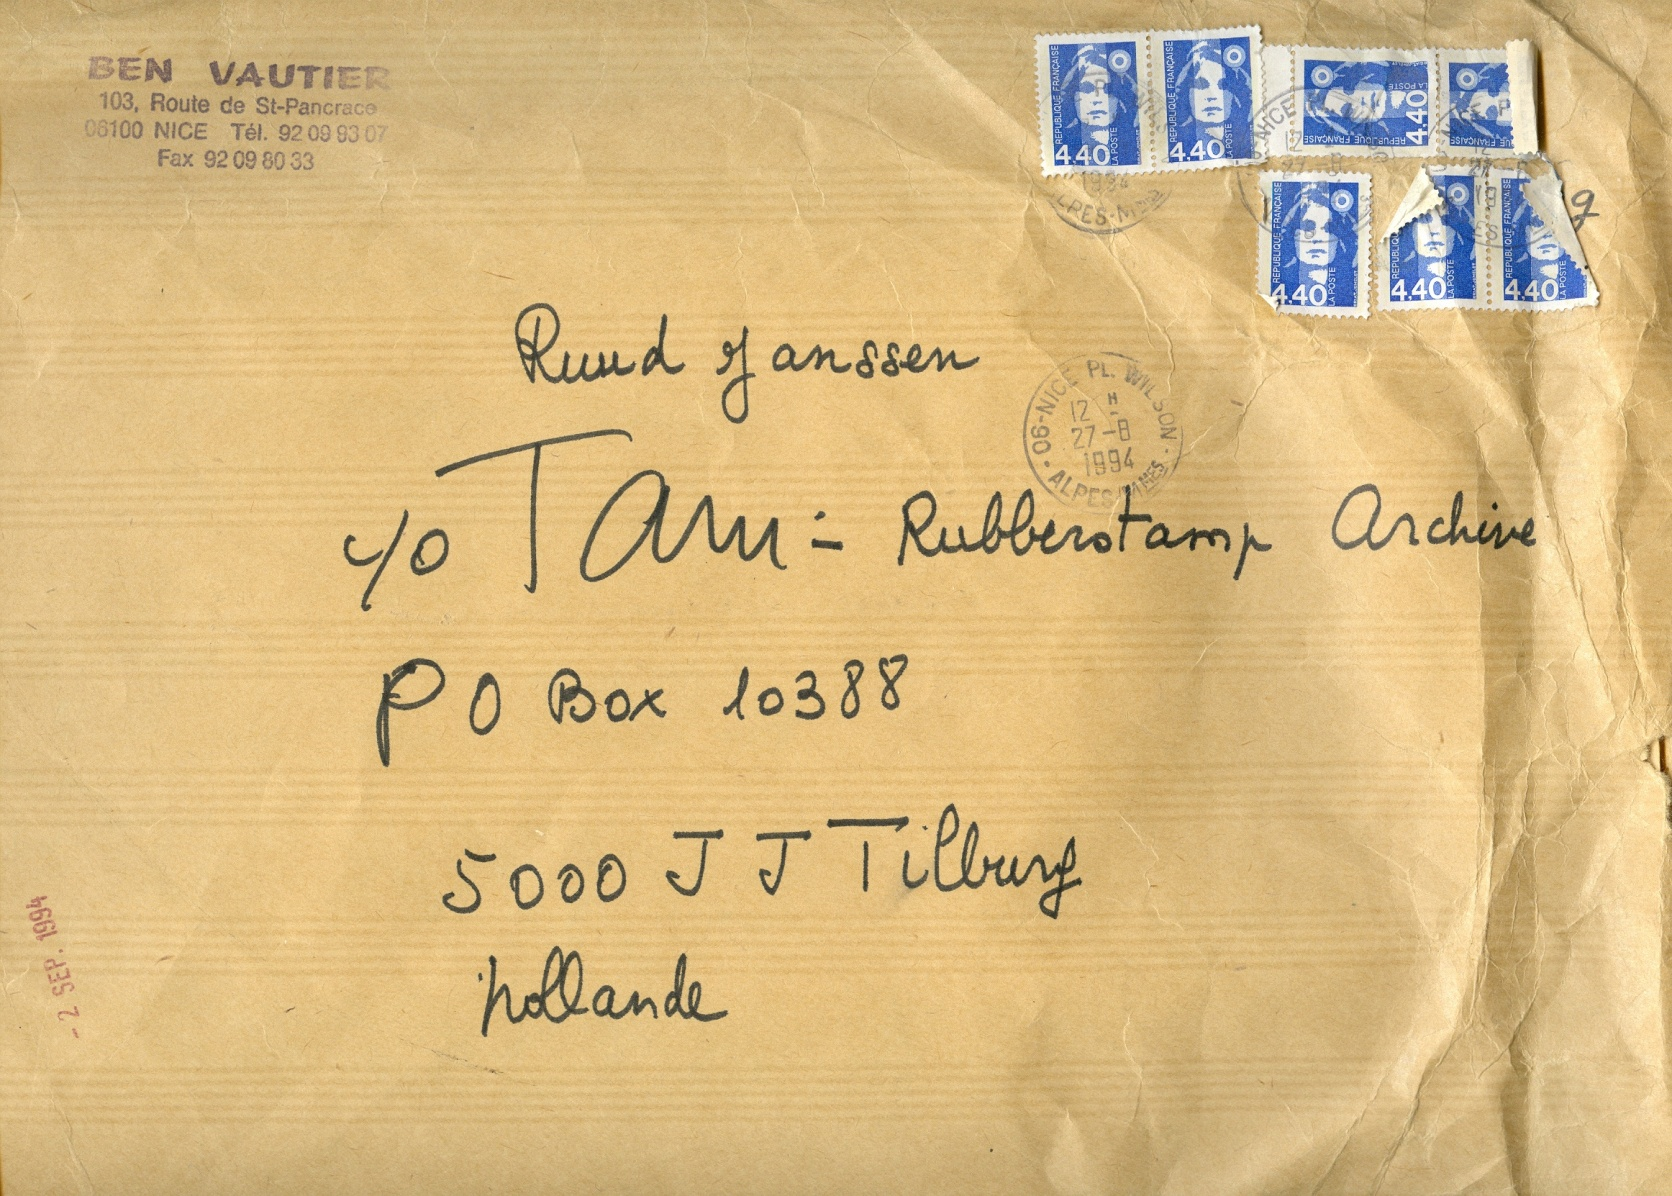 BEN VAUTIER
103, Route de St-Pancrace
06100 NICE Tél. 92 09 93 07
Fax 92 09 80 33
REPUBLIQUE FRANÇAISE
LA POSTE
4,40
REPUBLIQUE FRANÇAISE
LA POSTE
4,40
REPUBLIQUE FRANÇAISE
LA POSTE
4,40
REPUBLIQUE FRANÇAISE
LA POSTE
4,40
LA POSTE
4,40
LA POSTE
4,40
1994
ALPES-M
g
Ruud Janssen
06-NICE PL. WILSON
12 H
27-8
1994
ALPES-MMES
c/o TAM - Rubberstamp Archive
PO Box 10388
5000 JJ Tilburg
hollande
- 2 SEP. 1994